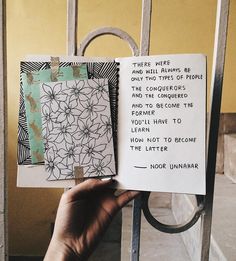 THERE WERE
AND WILL ALWAYS BE
ONLY TWO TYPES OF PEOPLE
THE CONQUERORS
AND THE CONQUERED
AND TO BECOME THE
FORMER
YOU'LL HAVE TO
LEARN
HOW NOT TO BECOME
THE LATTER
— NOOR UNNAHAR